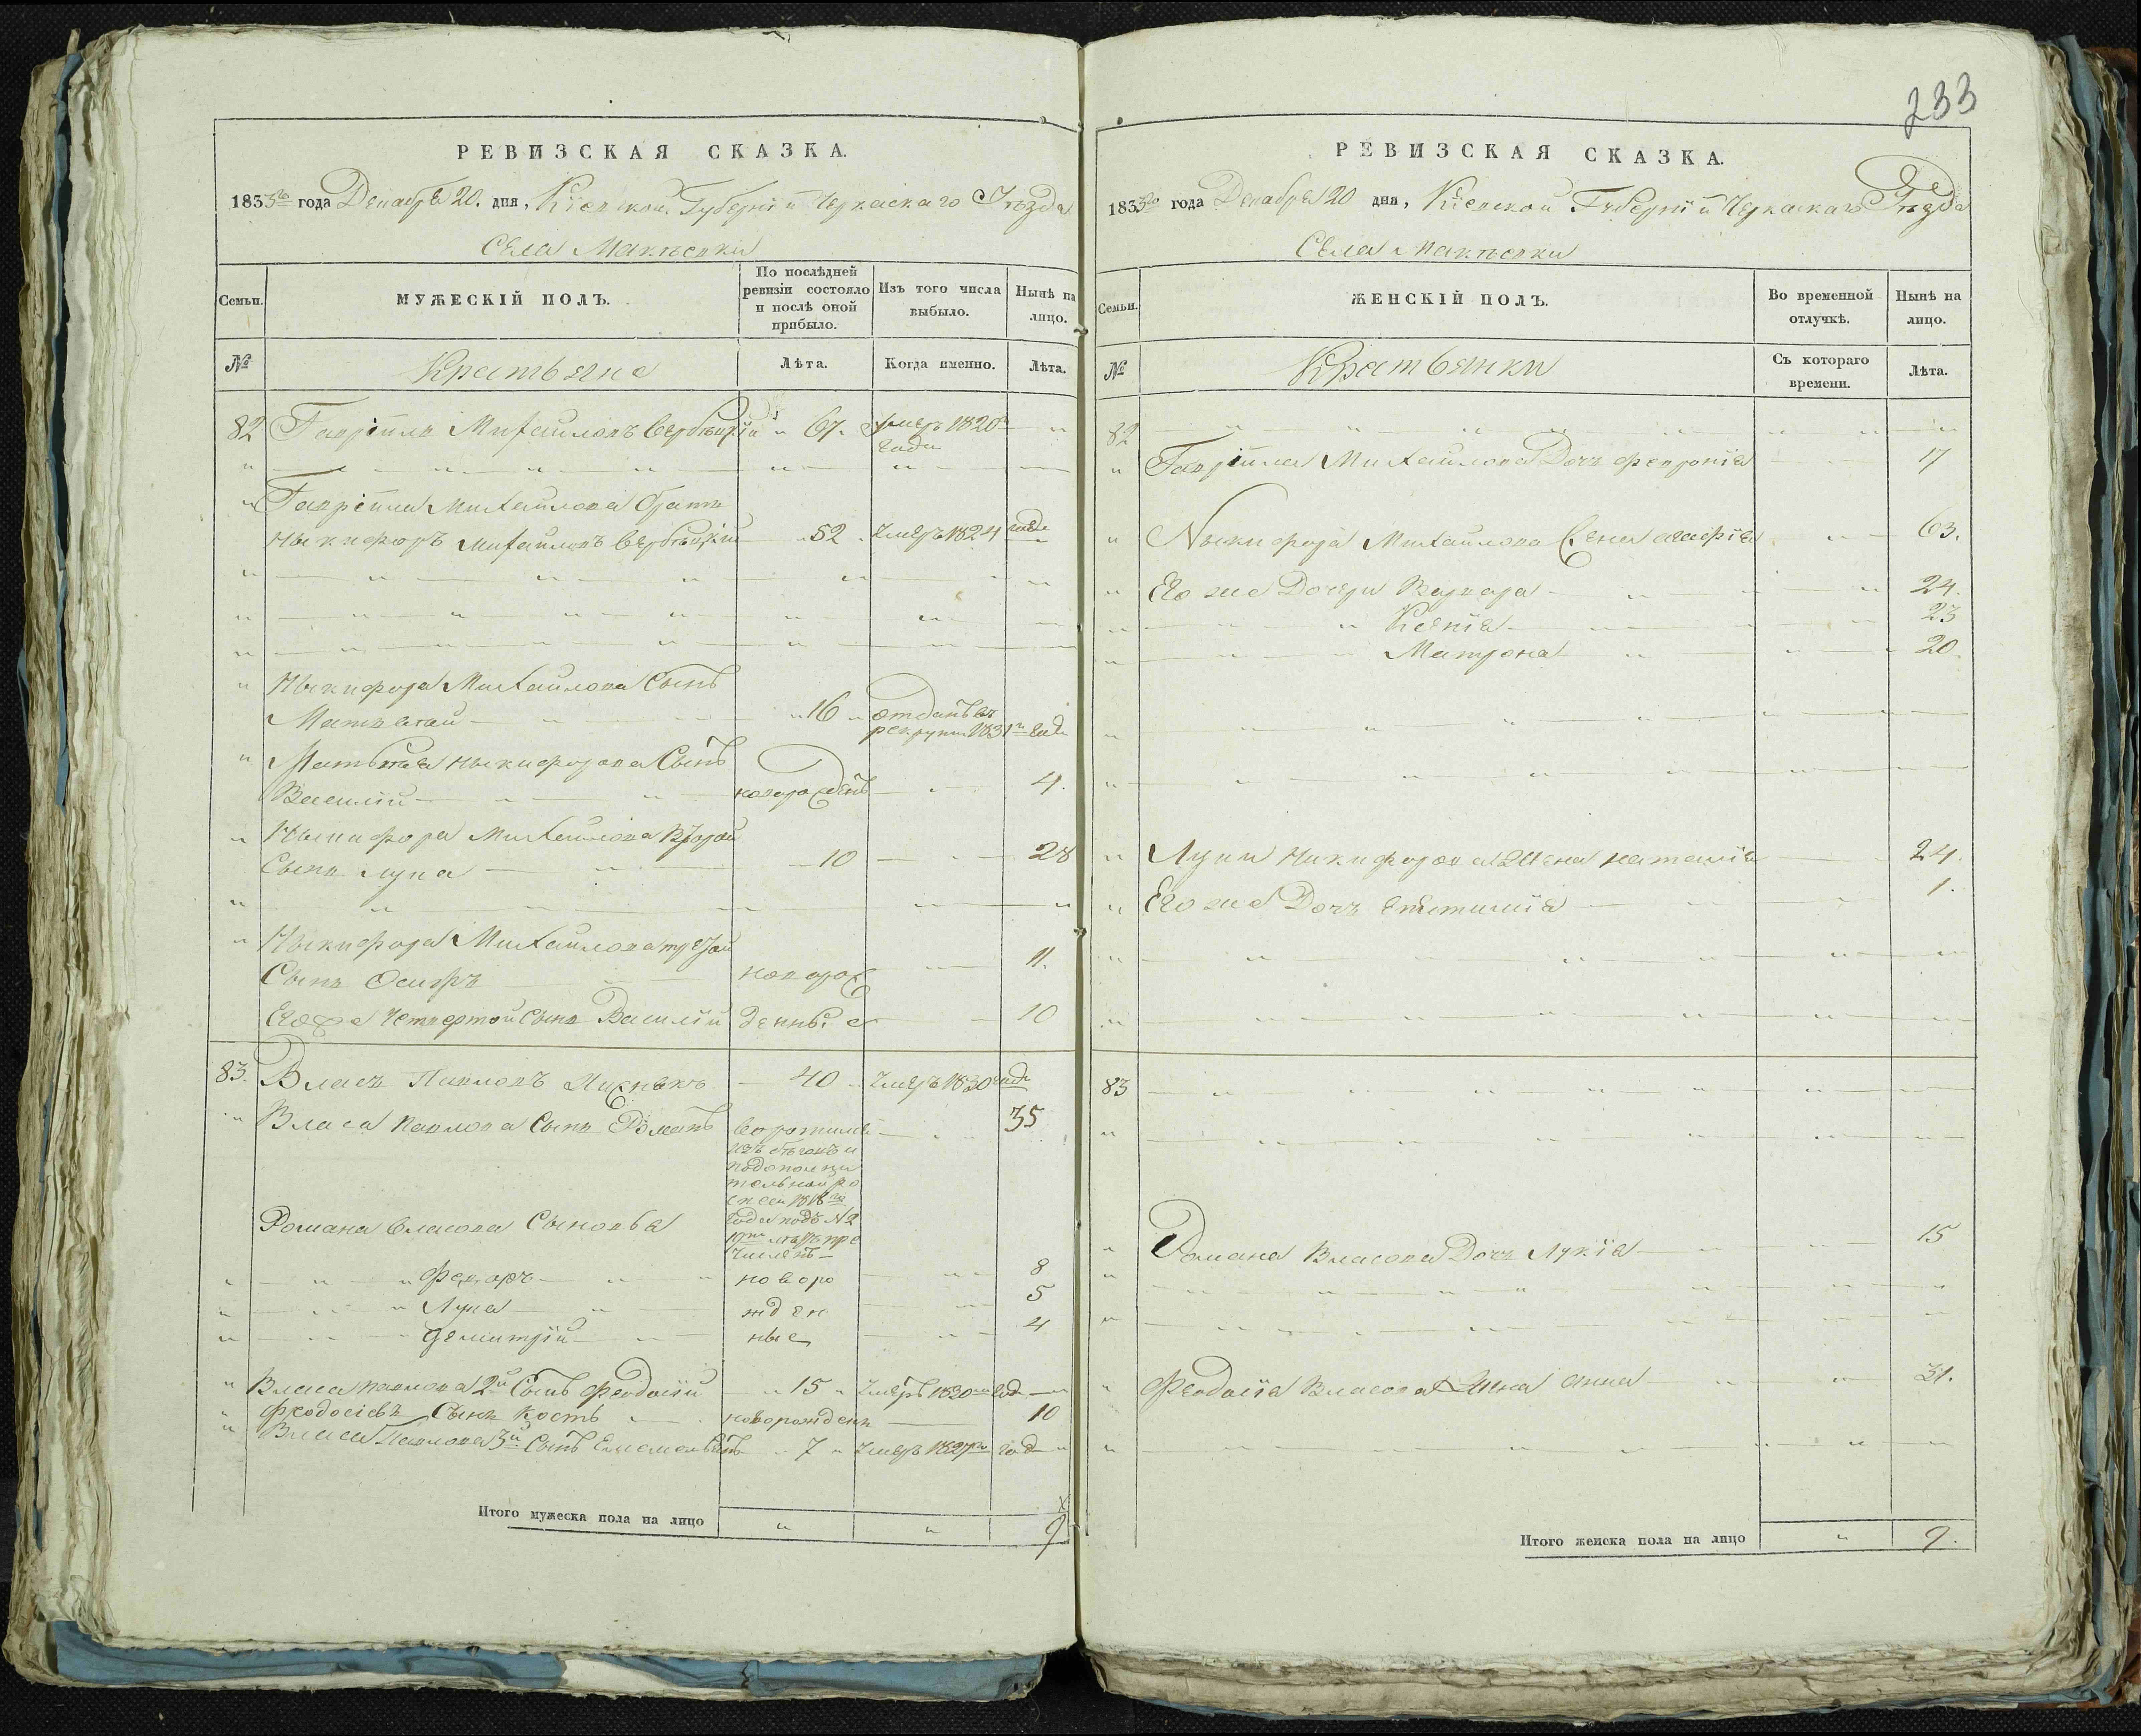 РЕВИЗСКАЯ СКАЗКА.
1833го года Декабря 20. дня, Кіевской Губерніи Черкаскаго Уѣзда
Села Макѣевки
Семьи.
МУЖЕСКІЙ ПОЛЪ.
По послѣдней ревизіи состояло и послѣ оной прибыло.
Изъ того числа выбыло.
Нынѣ на лицо.
№
Лѣта.
Когда именно.
Лѣта.
82 Гавріилъ Михайловъ Вербѣцкій 67. умеръ 1820
года
Гавріила Михайлова братъ
Никифоръ Михайловъ Вербѣцкій 52 умеръ 1824 года
Никифора Михайлова Сынъ
Матвей 16 отданъ въ
рекруты 1831го года
Матвѣя Никифорова Сынъ
Василій новорожденъ 4.
Никифора Михайлова Второй
Сынъ Лука 10 28
Никифора Михайлова третой
Сынъ Осипъ новорож 11.
Его же Четвертой Сынъ Василій денные 10
83. Власъ Павловъ 40 умеръ 1830 года
Власа Павлова Сынъ Романъ 35
изъ бѣговъ и
по дополни
тельной
1818го
года подъ №
Романа Власова Сыновья
Федоръ новоро 8
Лука жден 5
Демитрій ные 4
Власа Павлова 2й Сынъ Феодосій 15 умеръ 1830 год
Феодосіевъ Сынъ Кость новорожденъ 10
Власа Павлова 3й Сынъ Емельянъ 7 умеръ 1827го год
Итого мужеска пола на лицо 9
233
РЕВИЗСКАЯ СКАЗКА.
1833го года Декабря 20 дня, Кіевской Губерніи Черкаскаго Уѣзда
Села Макѣевки
Семьи.
ЖЕНСКІЙ ПОЛЪ.
Во временной отлучкѣ.
Нынѣ на лицо.
№
Съ котораго времени.
Лѣта.
82
Гавріила Михайлова Дочь Февронія 17
Никифора Михайлова Жена Агафія 63.
Его же Дочери Варвара 24.
Ксенія 23
Матрона 20
Луки Никифорова Жена Наталія 24.
Его же Дочь 1.
83
Романа Власова Дочь Лукія 15
Феодосія Власова Жена Анна 31.
Итого женска пола на лицо 9.